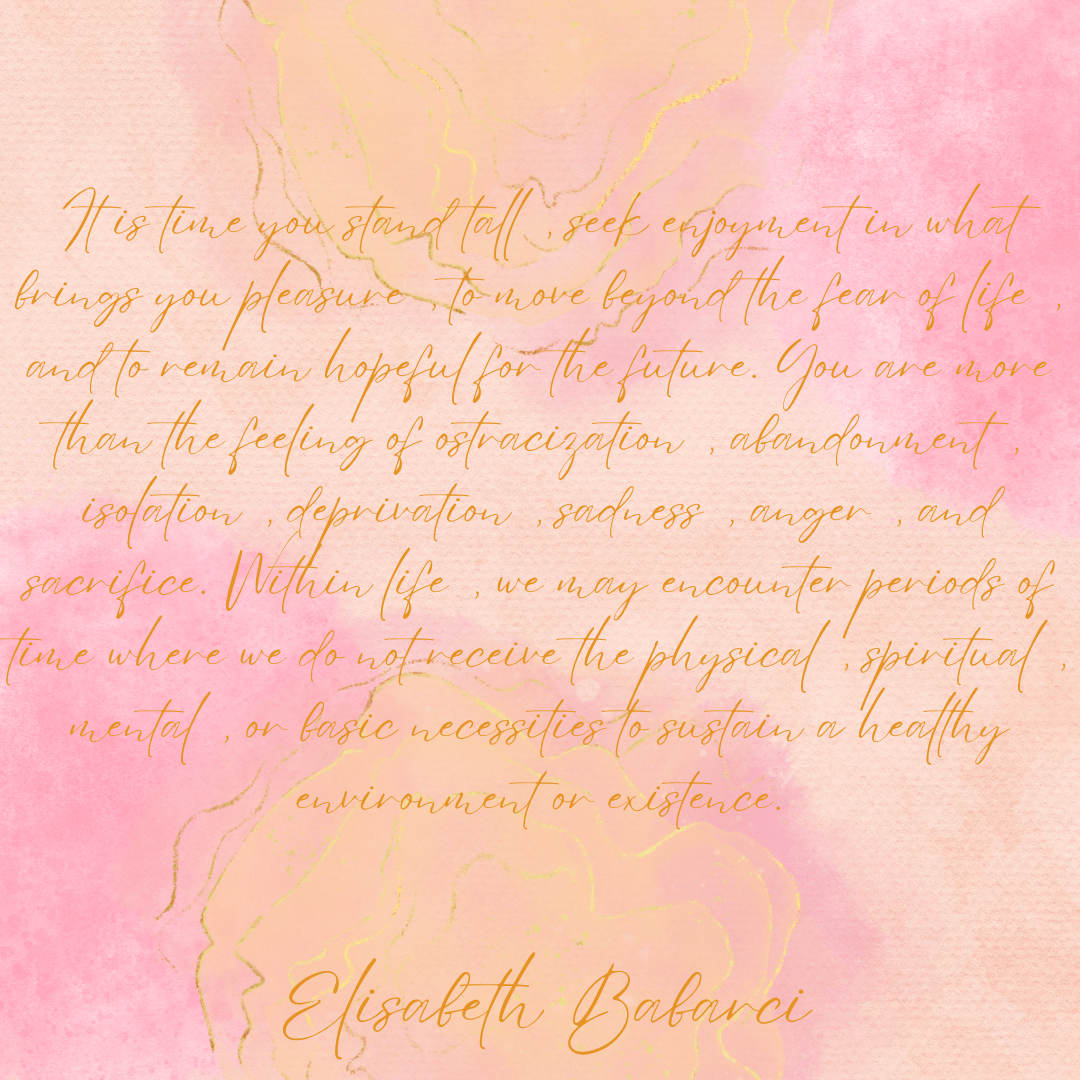 It is time you stand tall , seek enjoyment in what
brings you pleasure , to move beyond the fear of life ,
and to remain hopeful for the future. You are more
than the feeling of ostracization , abandonment ,
isolation , deprivation , sadness , anger , and
sacrifice. Within life , we may encounter periods of
time where we do not receive the physical , spiritual ,
mental , or basic necessities to sustain a healthy
environment or existence.
Elisabeth Babarci